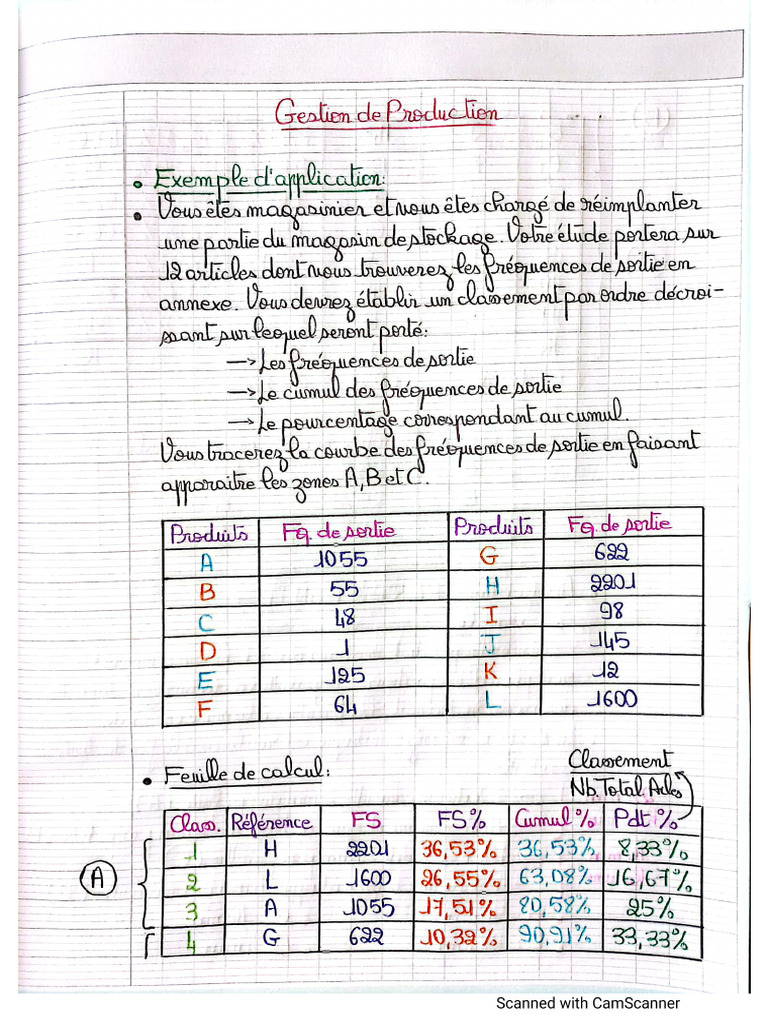 Gestion de Production
• Exemple d'application:
• Vous êtes magasinier et vous êtes chargé de réimplanter
une partie du magasin de stockage. Votre étude portera sur
12 articles dont vous trouverez les fréquences de sortie en
annexe. Vous devrez établir un classement par ordre décroi-
ssant sur lequel seront porté:
→ Les fréquences de sortie
→ Le cumul des fréquences de sortie
→ Le pourcentage correspondant au cumul.
Vous tracerez la courbe des fréquences de sortie en faisant
apparaitre les zones A, B et C.
Produits Fq. de sortie Produits Fq. de sortie
A 1055 G 622
B 55 H 2201
C 48 I 98
D 1 J 145
E 125 K 12
F 64 L 1600
• Feuille de calcul:
Classement
Nb. Total
Class. Référence FS FS% Cumul% Pdt%
1 H 2201 36,53% 36,53% 8,33%
A 2 L 1600 26,55% 63,08% 16,67%
3 A 1055 17,51% 80,58% 25%
4 G 622 10,32% 90,91% 33,33%
Scanned with CamScanner